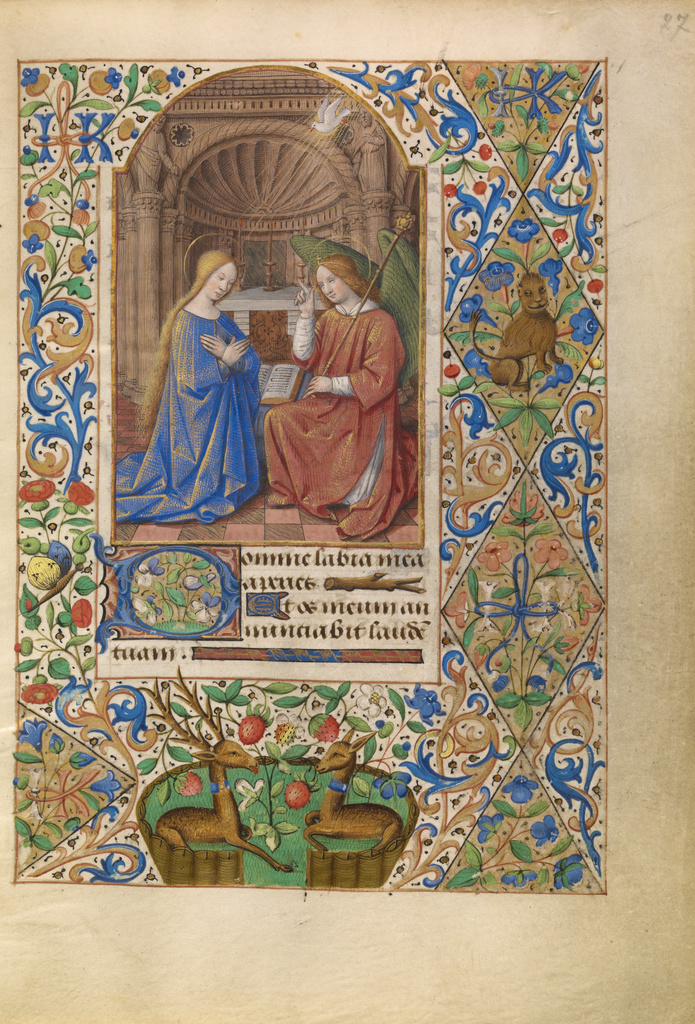 27
Domine labia mea
aperies
Et os meum an
nunciabit laudē
tuam.